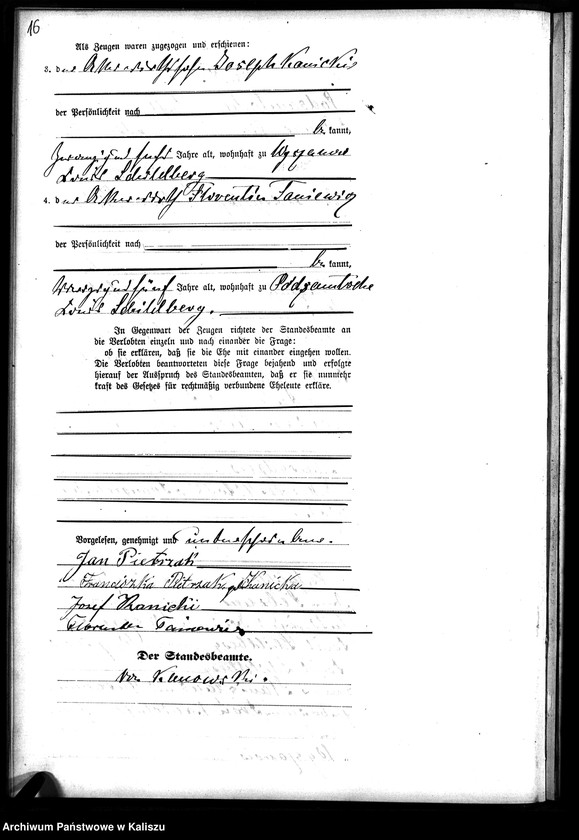 16
Als Zeugen waren zugezogen und erschienen:
3. der Joseph Kanicki
der Persönlichkeit nach
be kannt,
Jahre alt, wohnhaft zu Wyszanow
Kreis Schildberg
4. der Florentin
der Persönlichkeit nach
be kannt,
fünf Jahre alt, wohnhaft zu
Kreis Schildberg.
In Gegenwart der Zeugen richtete der Standesbeamte an
die Verlobten einzeln und nach einander die Frage:
ob sie erklären, daß sie die Ehe mit einander eingehen wollen.
Die Verlobten beantworteten diese Frage bejahend und erfolgte
hierauf der Ausspruch des Standesbeamten, daß er sie nunmehr
kraft des Gesetzes für rechtmäßig verbundene Eheleute erkläre.
Vorgelesen, genehmigt und unterschrieben.
Jan Pietrzak
Franciszka Pietrzak Kanicka
Josef Kanicki
Der Standesbeamte.
von
Archiwum Państwowe w Kaliszu